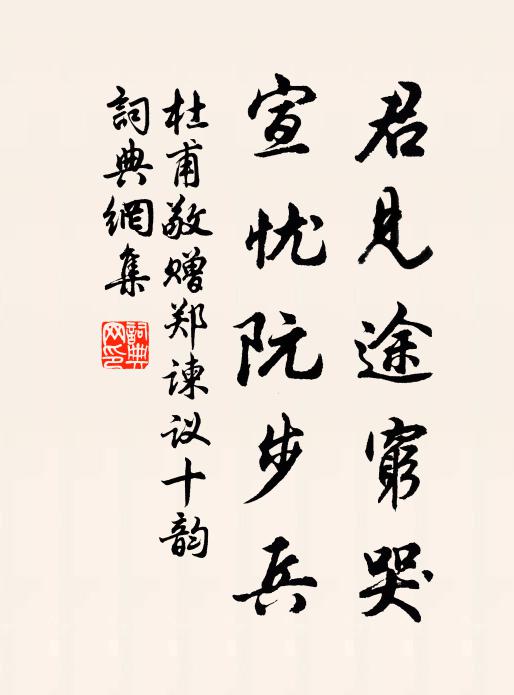 君见途穷哭
宣忧阮步兵
杜甫敬赠郑谏议十韵
詞典網集
詞典
网印